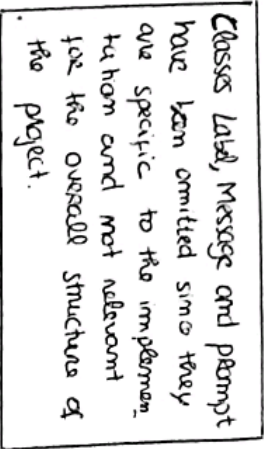 Classes Label, Message and prompt
have been ommitted since they
are specific to the implemen_
tation and not relevant
for the overall structure of
the project.